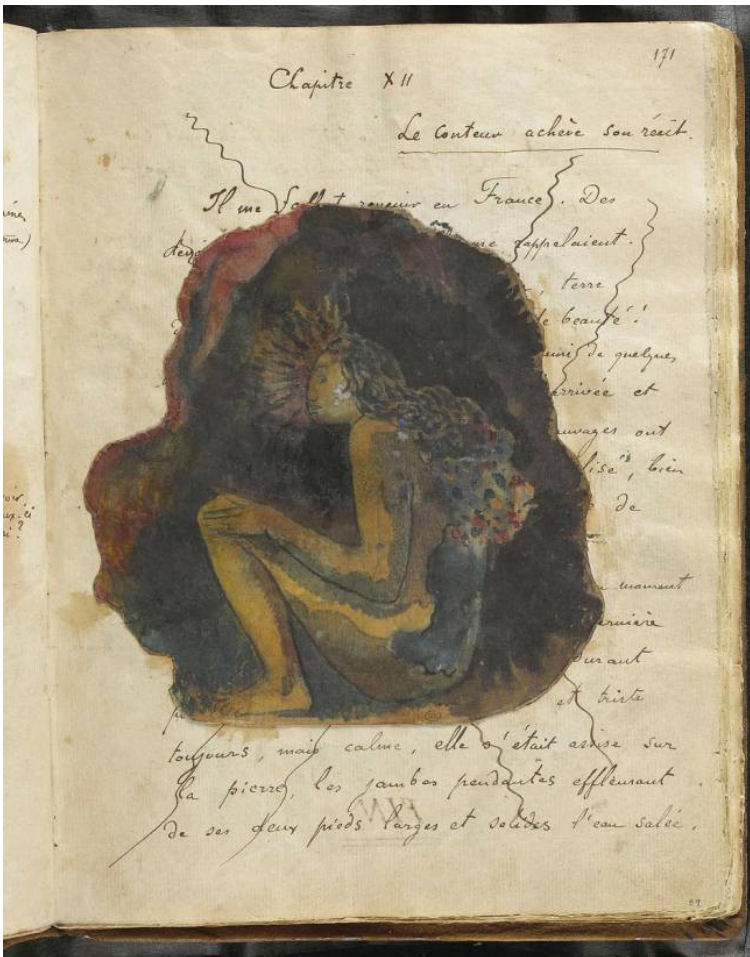 171
Chapitre XII
Le conteur achève son récit.
Il me fallut revenir en France. Des
me rappelaient.
terre
de beauté!
de quelques
arrivée et
sauvages ont
bien
de
moment
dernière
durant
et triste
toujours, mais calme, elle s'était assise sur
la pierre, les jambes pendantes effleurant
de ses deux pieds larges et solides l'eau salée.